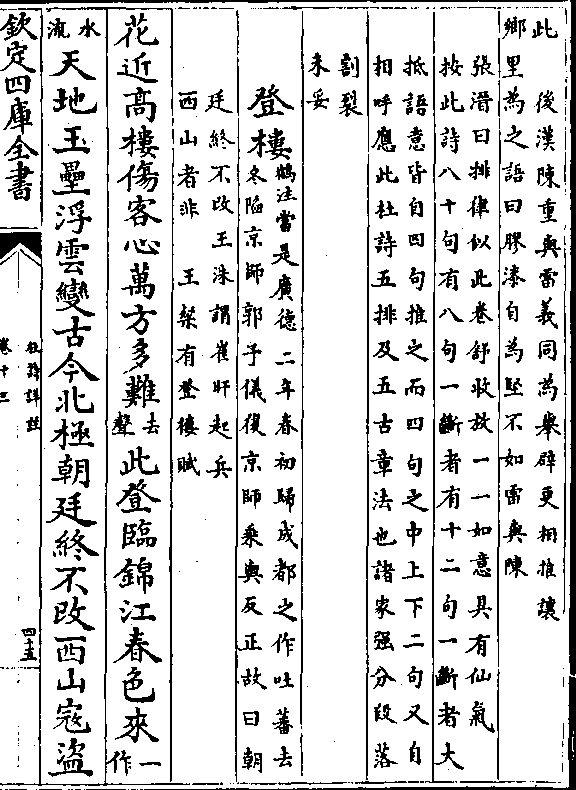 此　後漢陳重與雷義同為舉辟更相推讓
鄉里為之語曰膠漆自為堅不如雷與陳
張溍曰排律似此卷舒收放一一如意具有仙氣
按此詩八十句有八句一斷者有十二句一斷者大
抵語意皆自四句推之而四句之中上下二句又自
相呼應此杜詩五排及五古章法也諸家强分段落
割裂
未妥
登樓
鶴注當是廣德二年春初歸成都之作吐蕃去
冬陷京師郭子儀復京師乘輿反正故曰朝
廷終不改王洙謂崔旰起兵
西山者非　王粲有登樓賦
花近高樓傷客心萬方多難去聲此登臨錦江春色來一作
水流天地玉壘浮雲變古今北極朝廷終不改西山寇盜
欽定四庫全書
杜詩詳註
卷十三
四十五